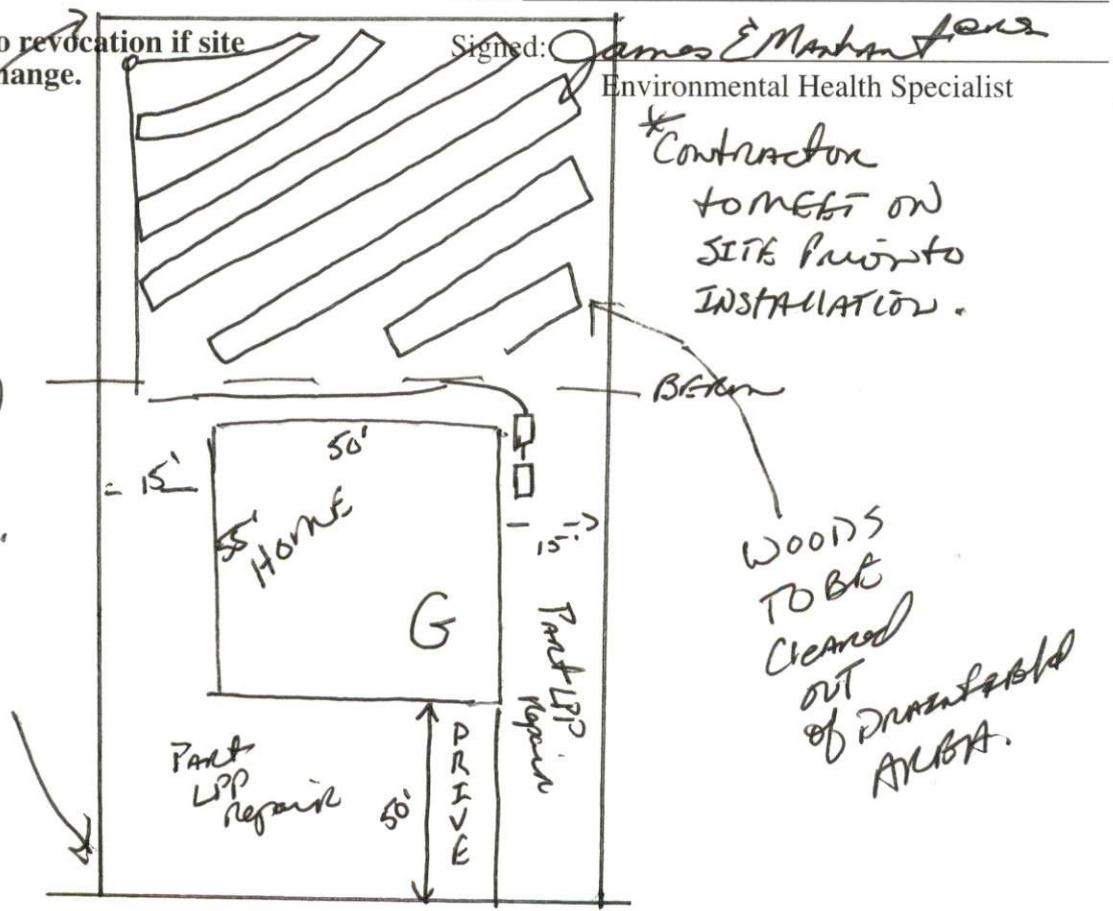 o revocation if site
hange.
Signed: James E Manhan
Environmental Health Specialist
*Contractor
to meet on
site prior to
installation.
Berm
50'
15'
55'
Home
15'
G
Woods
to be
cleared
out
of drainfield
area.
Part LPP
Repair
Part
LPP
Repair
50'
DRIVE